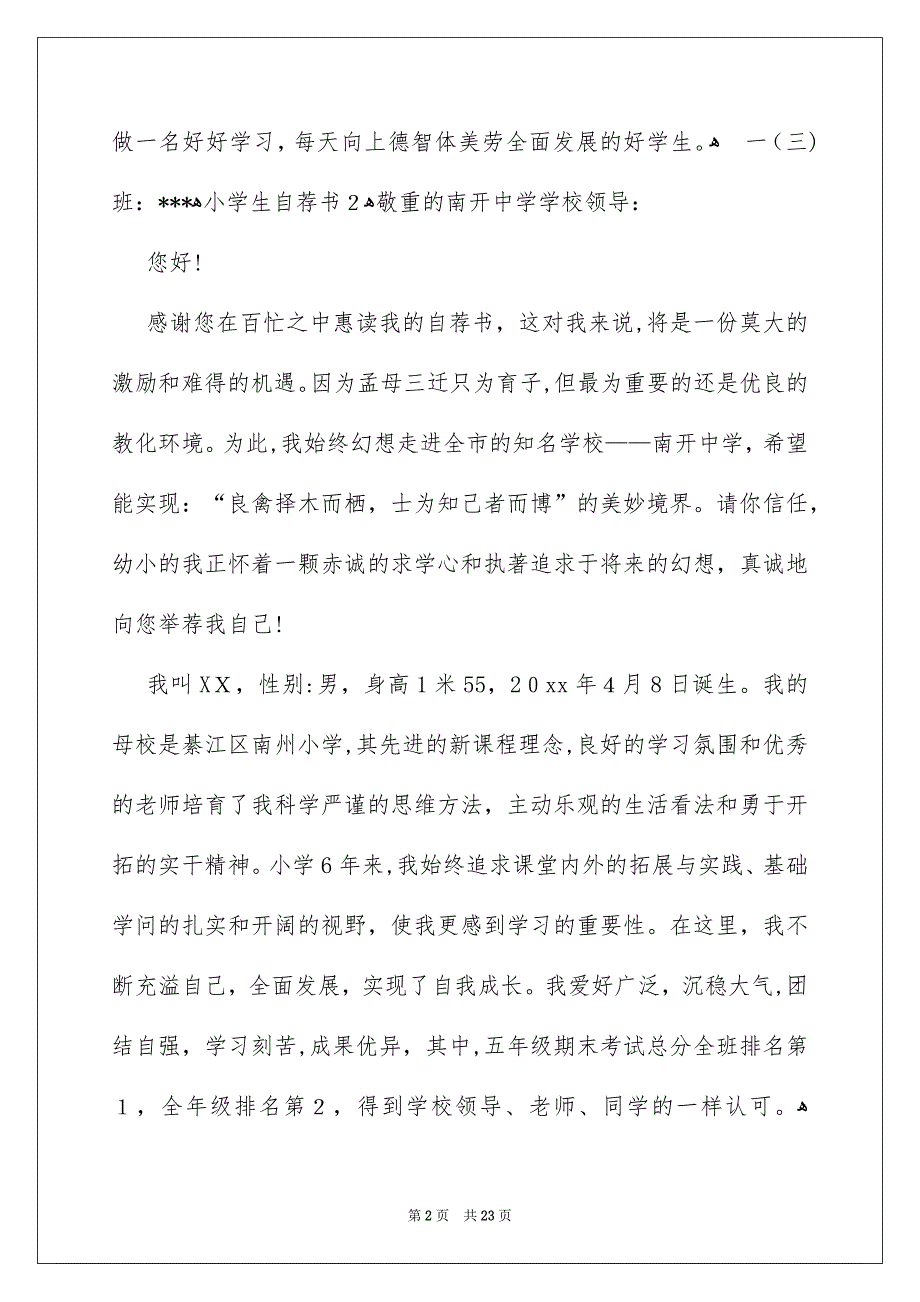 做一名好好学习，每天向上德智体美劳全面发展的好学生。ﻫ　一(三)
班：***ﻫ小学生自荐书２ﻫ敬重的南开中学学校领导：
您好!
感谢您在百忙之中惠读我的自荐书，这对我来说,将是一份莫大的
激励和难得的机遇。因为孟母三迁只为育子,但最为重要的还是优良的
教化环境。为此,我始终幻想走进全市的知名学校——南开中学，希望
能实现：“良禽择木而栖，士为知己者而博”的美妙境界。请你信任，
幼小的我正怀着一颗赤诚的求学心和执著追求于将来的幻想，真诚地
向您举荐我自己!
我叫XＸ，性别:男，身高１米55，２０xx年４月８日诞生。我的
母校是綦江区南州小学,其先进的新课程理念,良好的学习氛围和优秀
的老师培育了我科学严谨的思维方法，主动乐观的生活看法和勇于开
拓的实干精神。小学６年来,我始终追求课堂内外的拓展与实践、基础
学问的扎实和开阔的视野，使我更感到学习的重要性。在这里，我不
断充溢自己，全面发展，实现了自我成长。我爱好广泛，沉稳大气,团
结自强，学习刻苦,成果优异，其中,五年级期末考试总分全班排名第
１，全年级排名第２，得到学校领导、老师、同学的一样认可。ﻫ
第2页　共23页